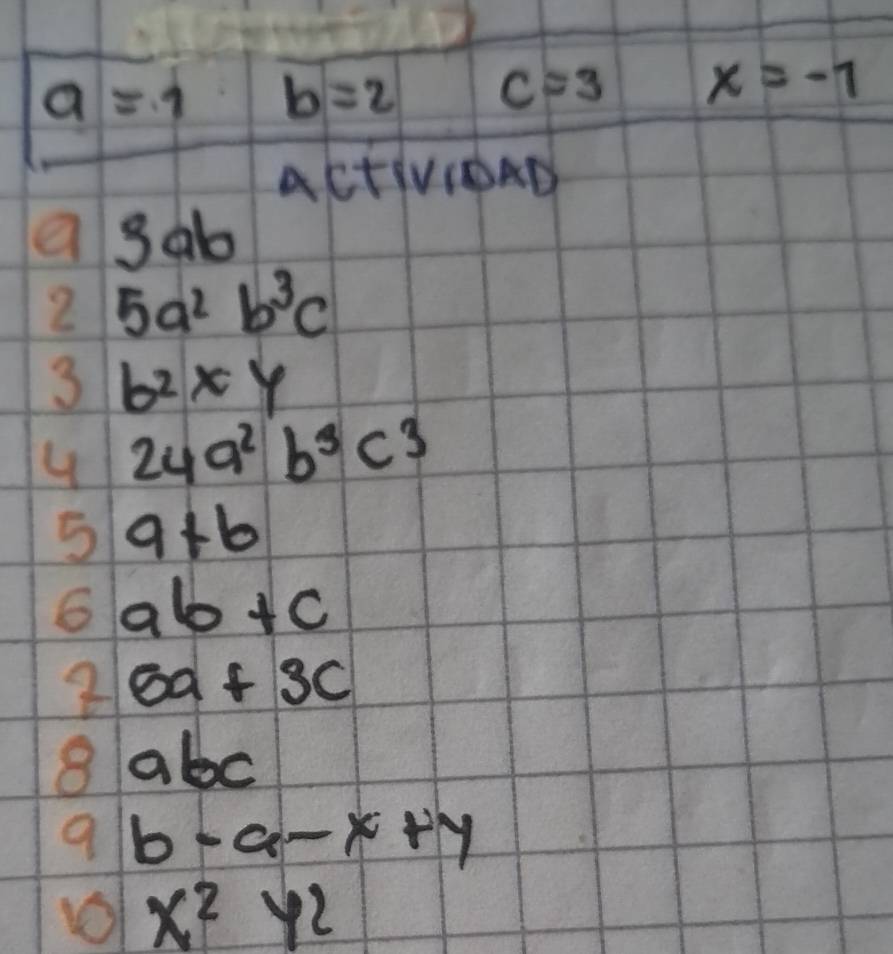 a = 1 b = 2 c = 3 x = -1
ACTIVIDAD
a 3ab
2 5a² b³c
3 b² x y
4 24a² b³ c³
5 a + b
6 ab + c
7 6a + 3c
8 abc
9 b - a - x + y
10 x² y2